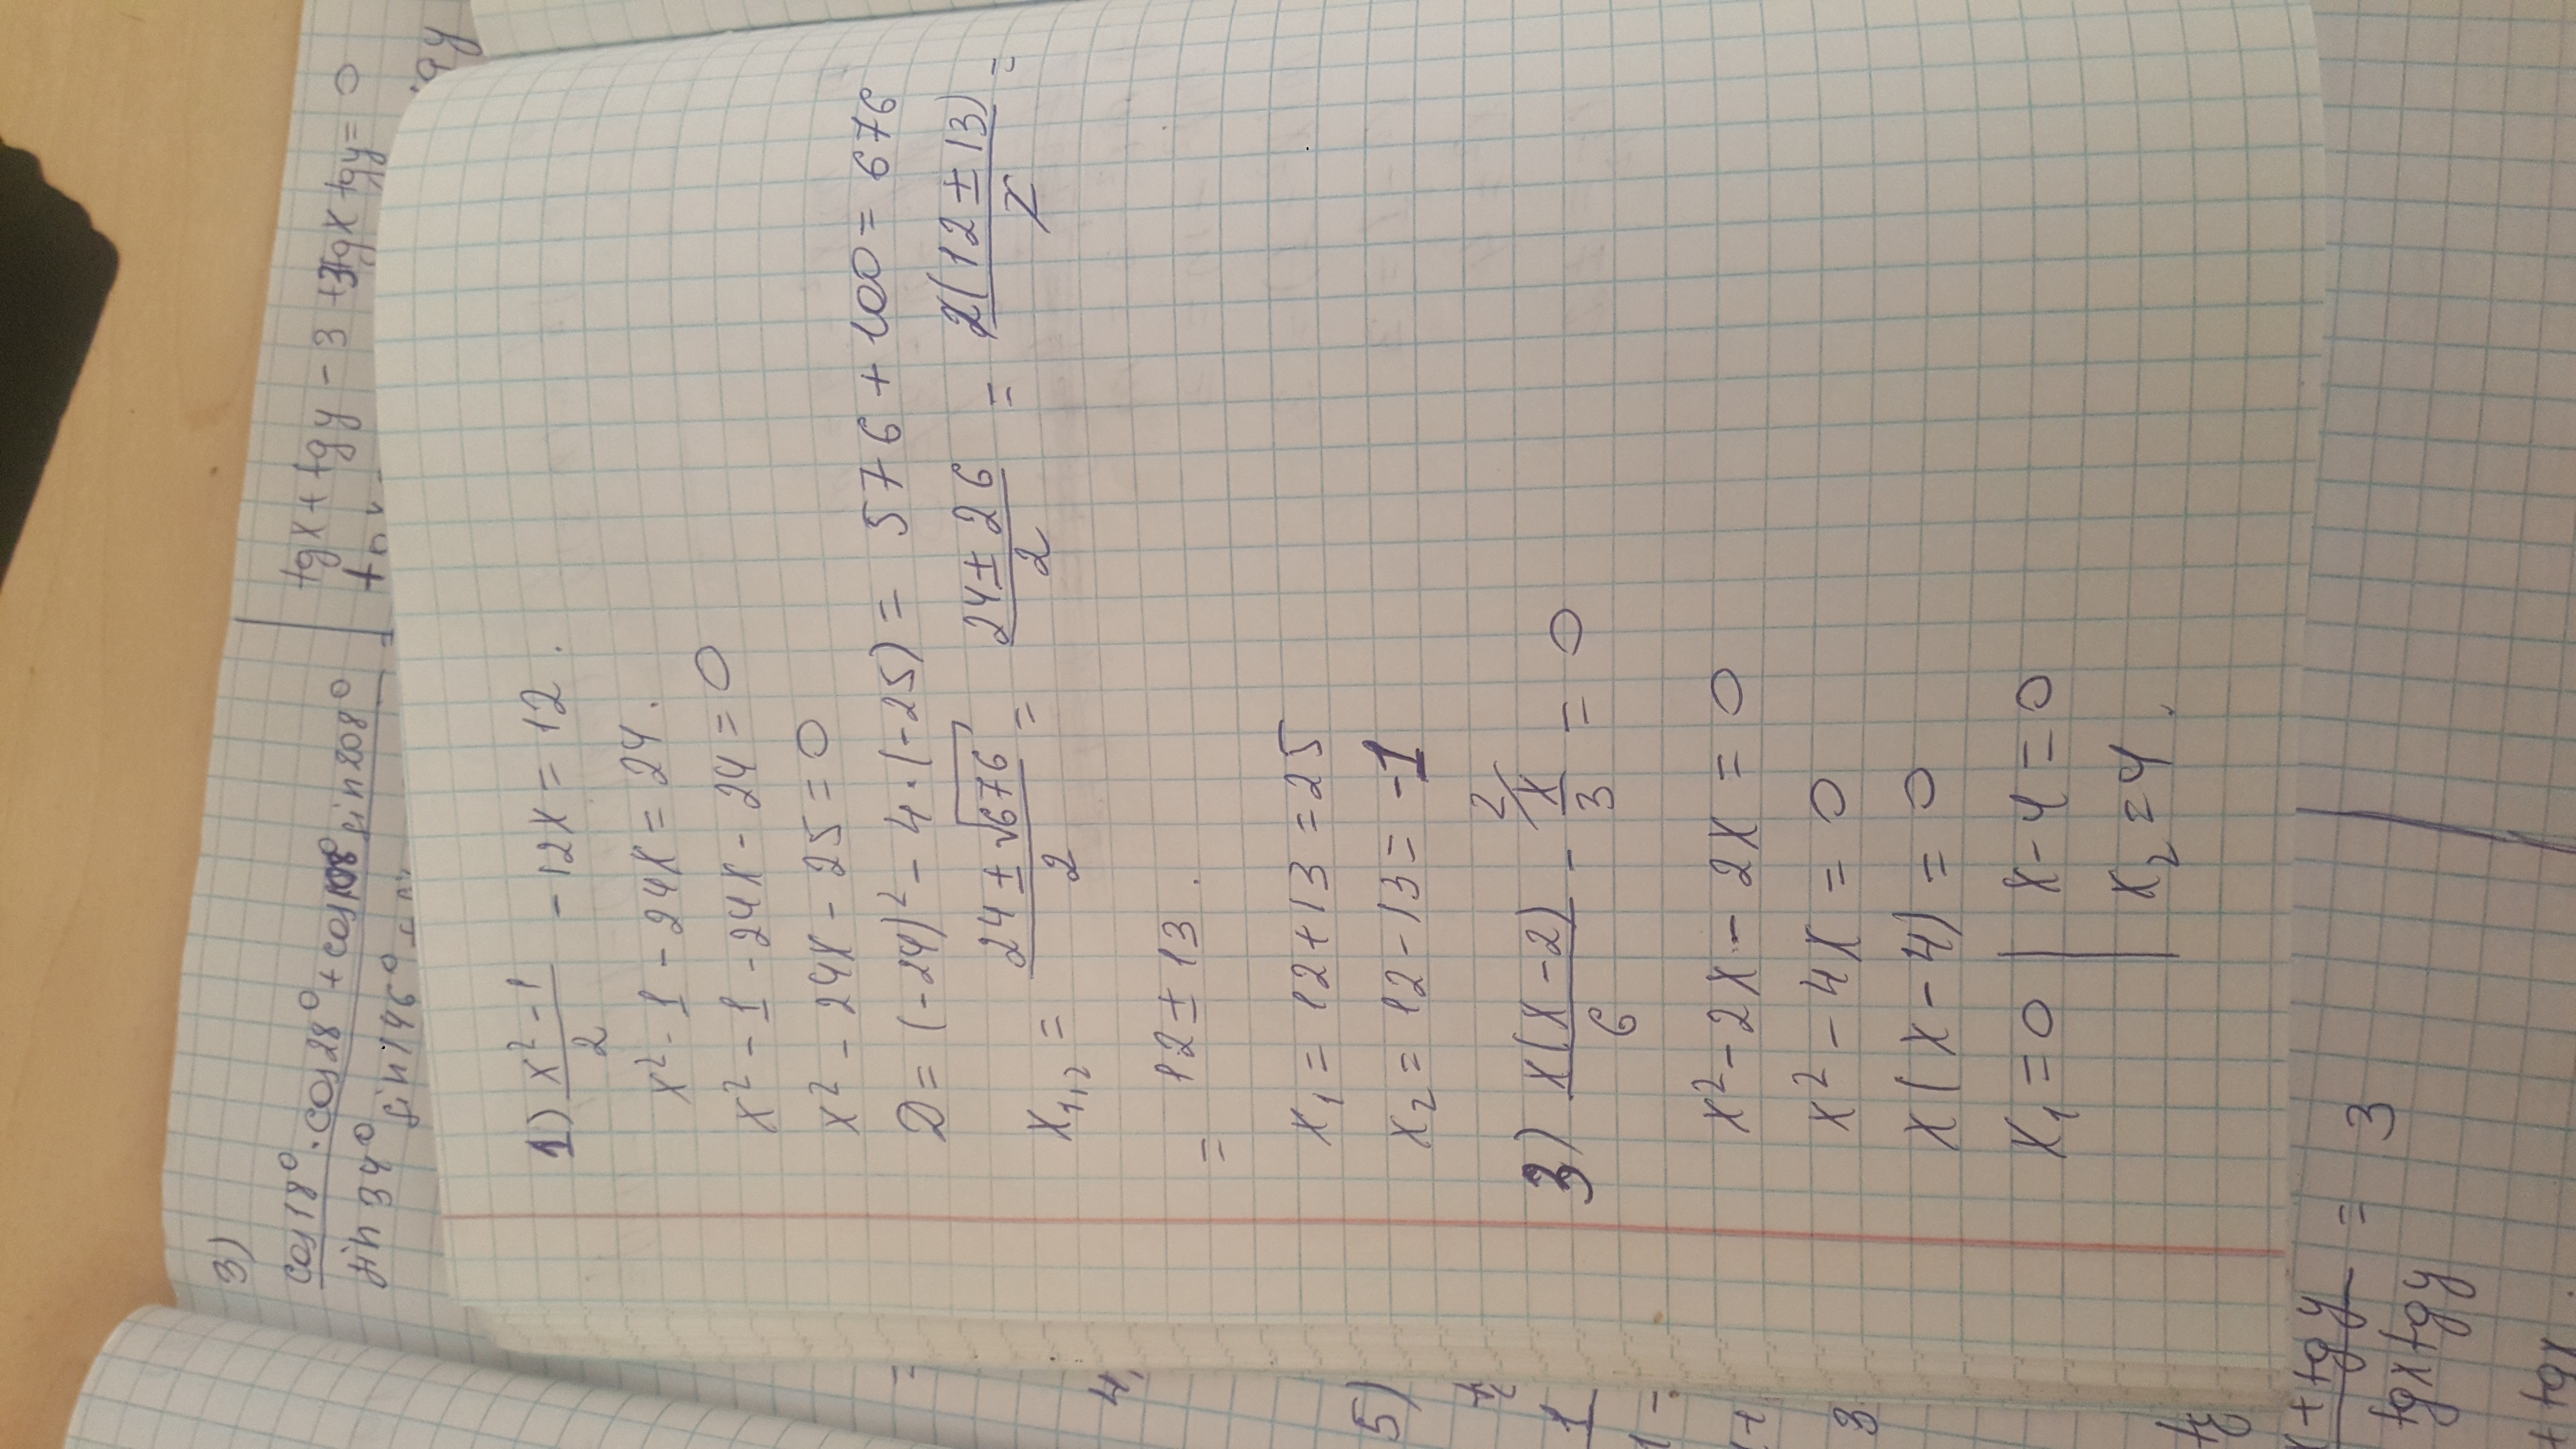 3)
cos18°·cos28°+cos108° sin208°
sin34°
sin146°
tgx+tgy-3+3tgx tgy=0
1) x²-1/2 - 12x = 12.
x² - 1 - 24x = 24.
x² - 1 - 24x - 24 = 0
x² - 24x - 25 = 0
D = (-24)² - 4·(-25) = 576 + 100 = 676
x₁,₂ = 24 ± √676/2 = 24 ± 26/2 = 2(12 ± 13)/2 =
= 12 ± 13.
x₁ = 12 + 13 = 25
x₂ = 12 - 13 = -1
3) x(x-2)/6 - x/3 = 0
2
x² - 2x - 2x = 0
x² - 4x = 0
x(x-4) = 0
x₁ = 0 | x - 4 = 0
x₂ = 4.
4,
5)
= 3
tgx+tgy